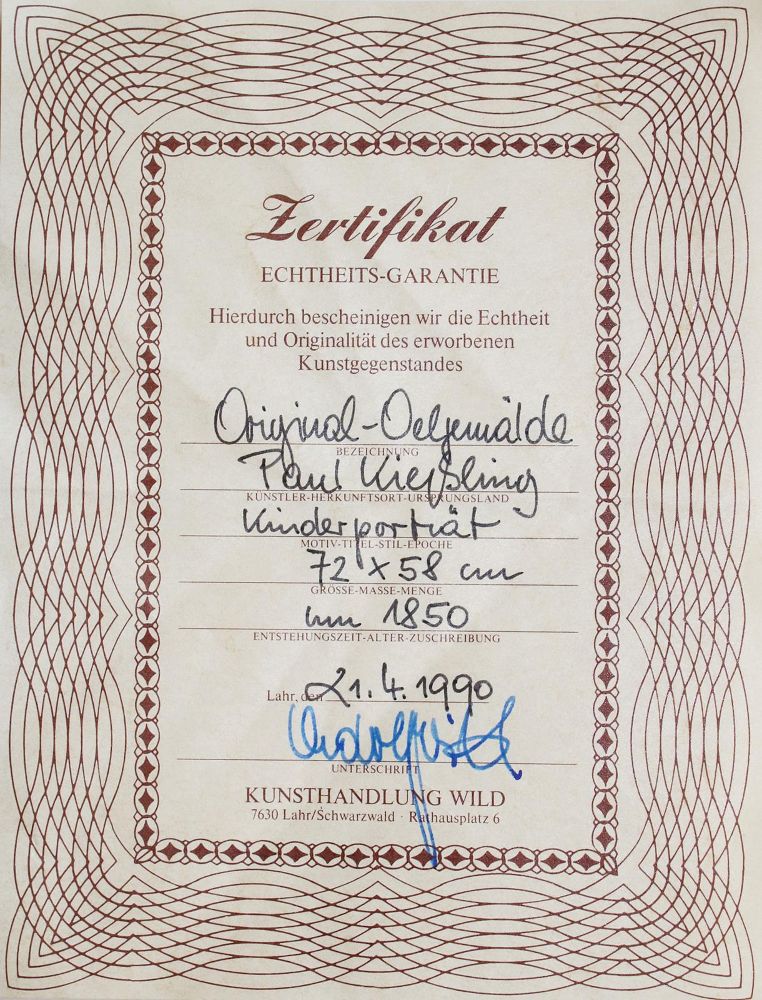 Zertifikat
ECHTHEITS-GARANTIE
Hierdurch bescheinigen wir die Echtheit
und Originalität des erworbenen
Kunstgegenstandes
Original-Oelgemälde
BEZEICHNUNG
Paul Kießling
KÜNSTLER-HERKUNFTSORT-URSPRUNGSLAND
Kinderporträt
MOTIV-TITEL-STIL-EPOCHE
72 x 58 cm
GRÖSSE-MASSE-MENGE
um 1850
ENTSTEHUNGSZEIT-ALTER-ZUSCHREIBUNG
Lahr, den 21.4.1990
UNTERSCHRIFT
KUNSTHANDLUNG WILD
7630 Lahr/Schwarzwald · Rathausplatz 6